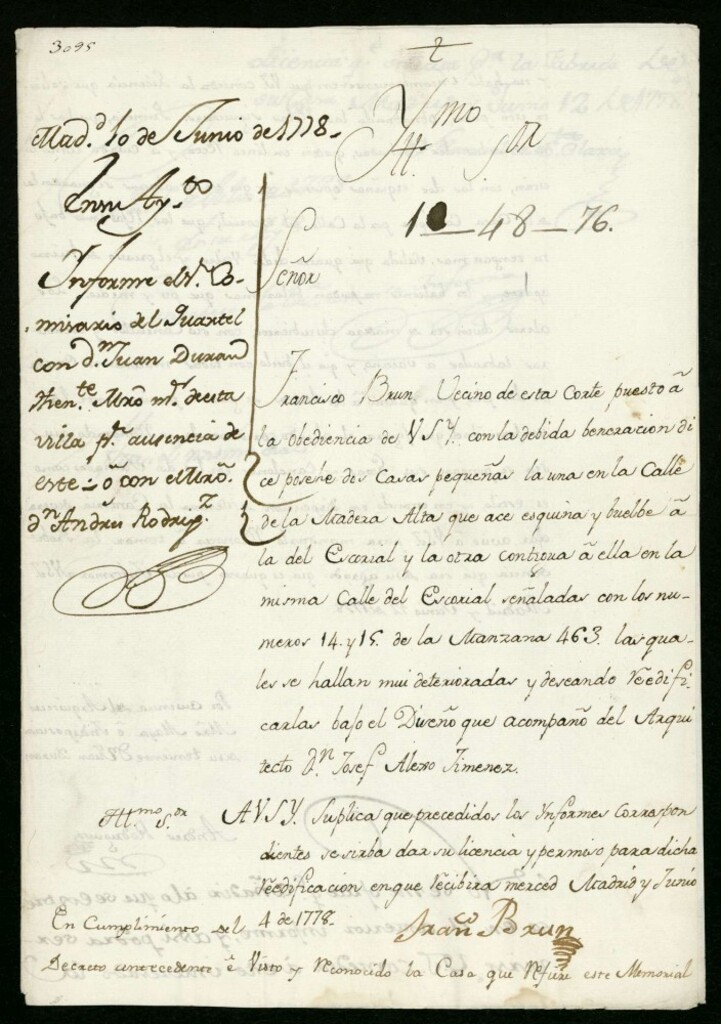 3095
Ylmo
Sor
Mad.d 10 de Junio de 1778.
En su Ay.to
1 — 48 — 76.
Informe el S.r Co-
misario del Quartel
con d.n Juan Duran
then.te Mrõ m.r de esta
villa p.r ausencia de
este = õ con el Mrõ.
d.n Andres Rodrig.z
Señor
Francisco Brun Vecino de esta Corte puesto â
la obediencia de VSY. con la debida beneracion di
ce posehe dos Casas pequeñas la una en la Calle
de la Madera Alta que ace esquina y buelbe â
la del Escorial y la otra contigua â ella en la
misma Calle del Escorial señaladas con los nu-
meros 14. y 15. de la Manzana 463. las qua-
les se hallan mui deterioradas y deseando rêedifi-
carlas bajo el Diseño que acompaño del Arqui
tecto D.n Josef Alexo Jimenez.
A VSY. Suplica que precedidos los Ynformes Correspon
dientes se sirba dar su licencia y permiso para dicha
rêedificacion en que recibira merced Madrid y Junio
4 de 1778.
Fran.co Brun
Yll.mo S.or
En Cumplimiento del
Decreto antecedente ê Visto y reconocido la Casa que refiere este Memorial